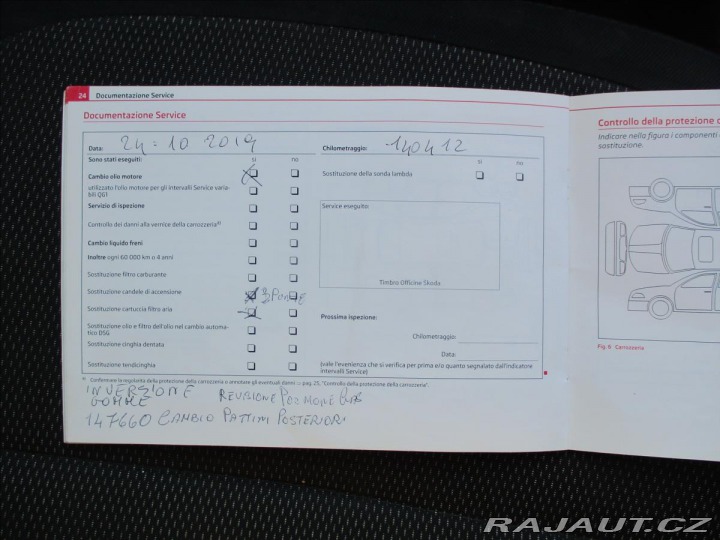 24 Documentazione Service
Documentazione Service
Data: 24-10 2019
Chilometraggio: 140412
Sono stati eseguiti: si no
si no
Cambio olio motore
Sostituzione della sonda lambda
utilizzato l'olio motore per gli intervalli Service varia-
bili QG1
Servizio di ispezione
Service eseguito:
Controllo dei danni alla vernice della carrozzeria a)
Cambio liquido freni
Inoltre ogni 60 000 km o 4 anni
Sostituzione filtro carburante
Timbro Officine Škoda
Sostituzione candele di accensione
Sostituzione cartuccia filtro aria
Prossima ispezione:
Sostituzione olio e filtro dell'olio nel cambio automa-
tico DSG
Chilometraggio:
Sostituzione cinghia dentata
Data:
Sostituzione tendicinghia
(vale l'evenienza che si verifica per prima e/o quanto segnalato dall'indicatore
intervalli Service)
a) Confermare la regolarità della protezione della carrozzeria o annotare gli eventuali danni ⇒ pag. 25, "Controllo della protezione della carrozzeria".
INVERSIONE
GOMME
REVISIONE POLMONE GAS
147660 CAMBIO PATTINI POSTERIORI
Controllo della protezione d
Indicare nella figura i componenti
sostituzione.
Fig. 8 Carrozzeria
RAJAUT.CZ